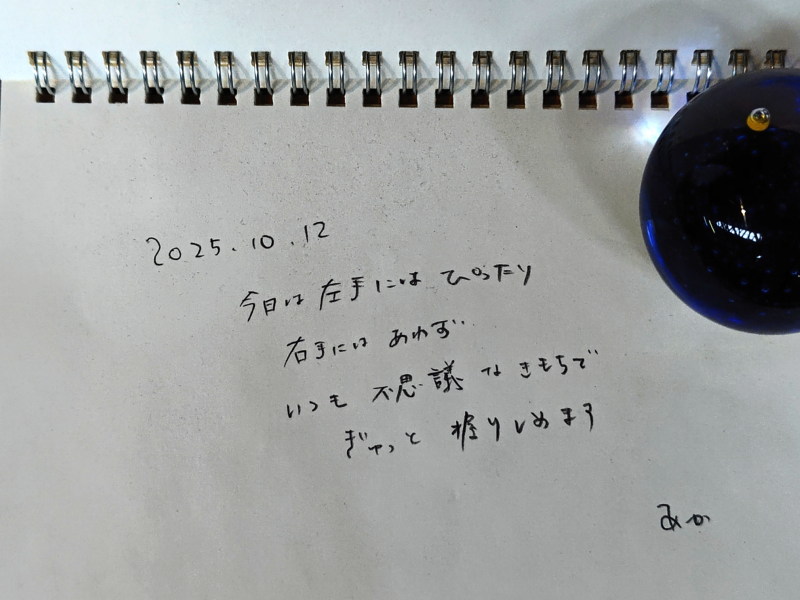 2025.10.12
今日は左手にはぴったり
右手にはあわず
いつも不思議なきもちで
ぎゅっと握りしめます